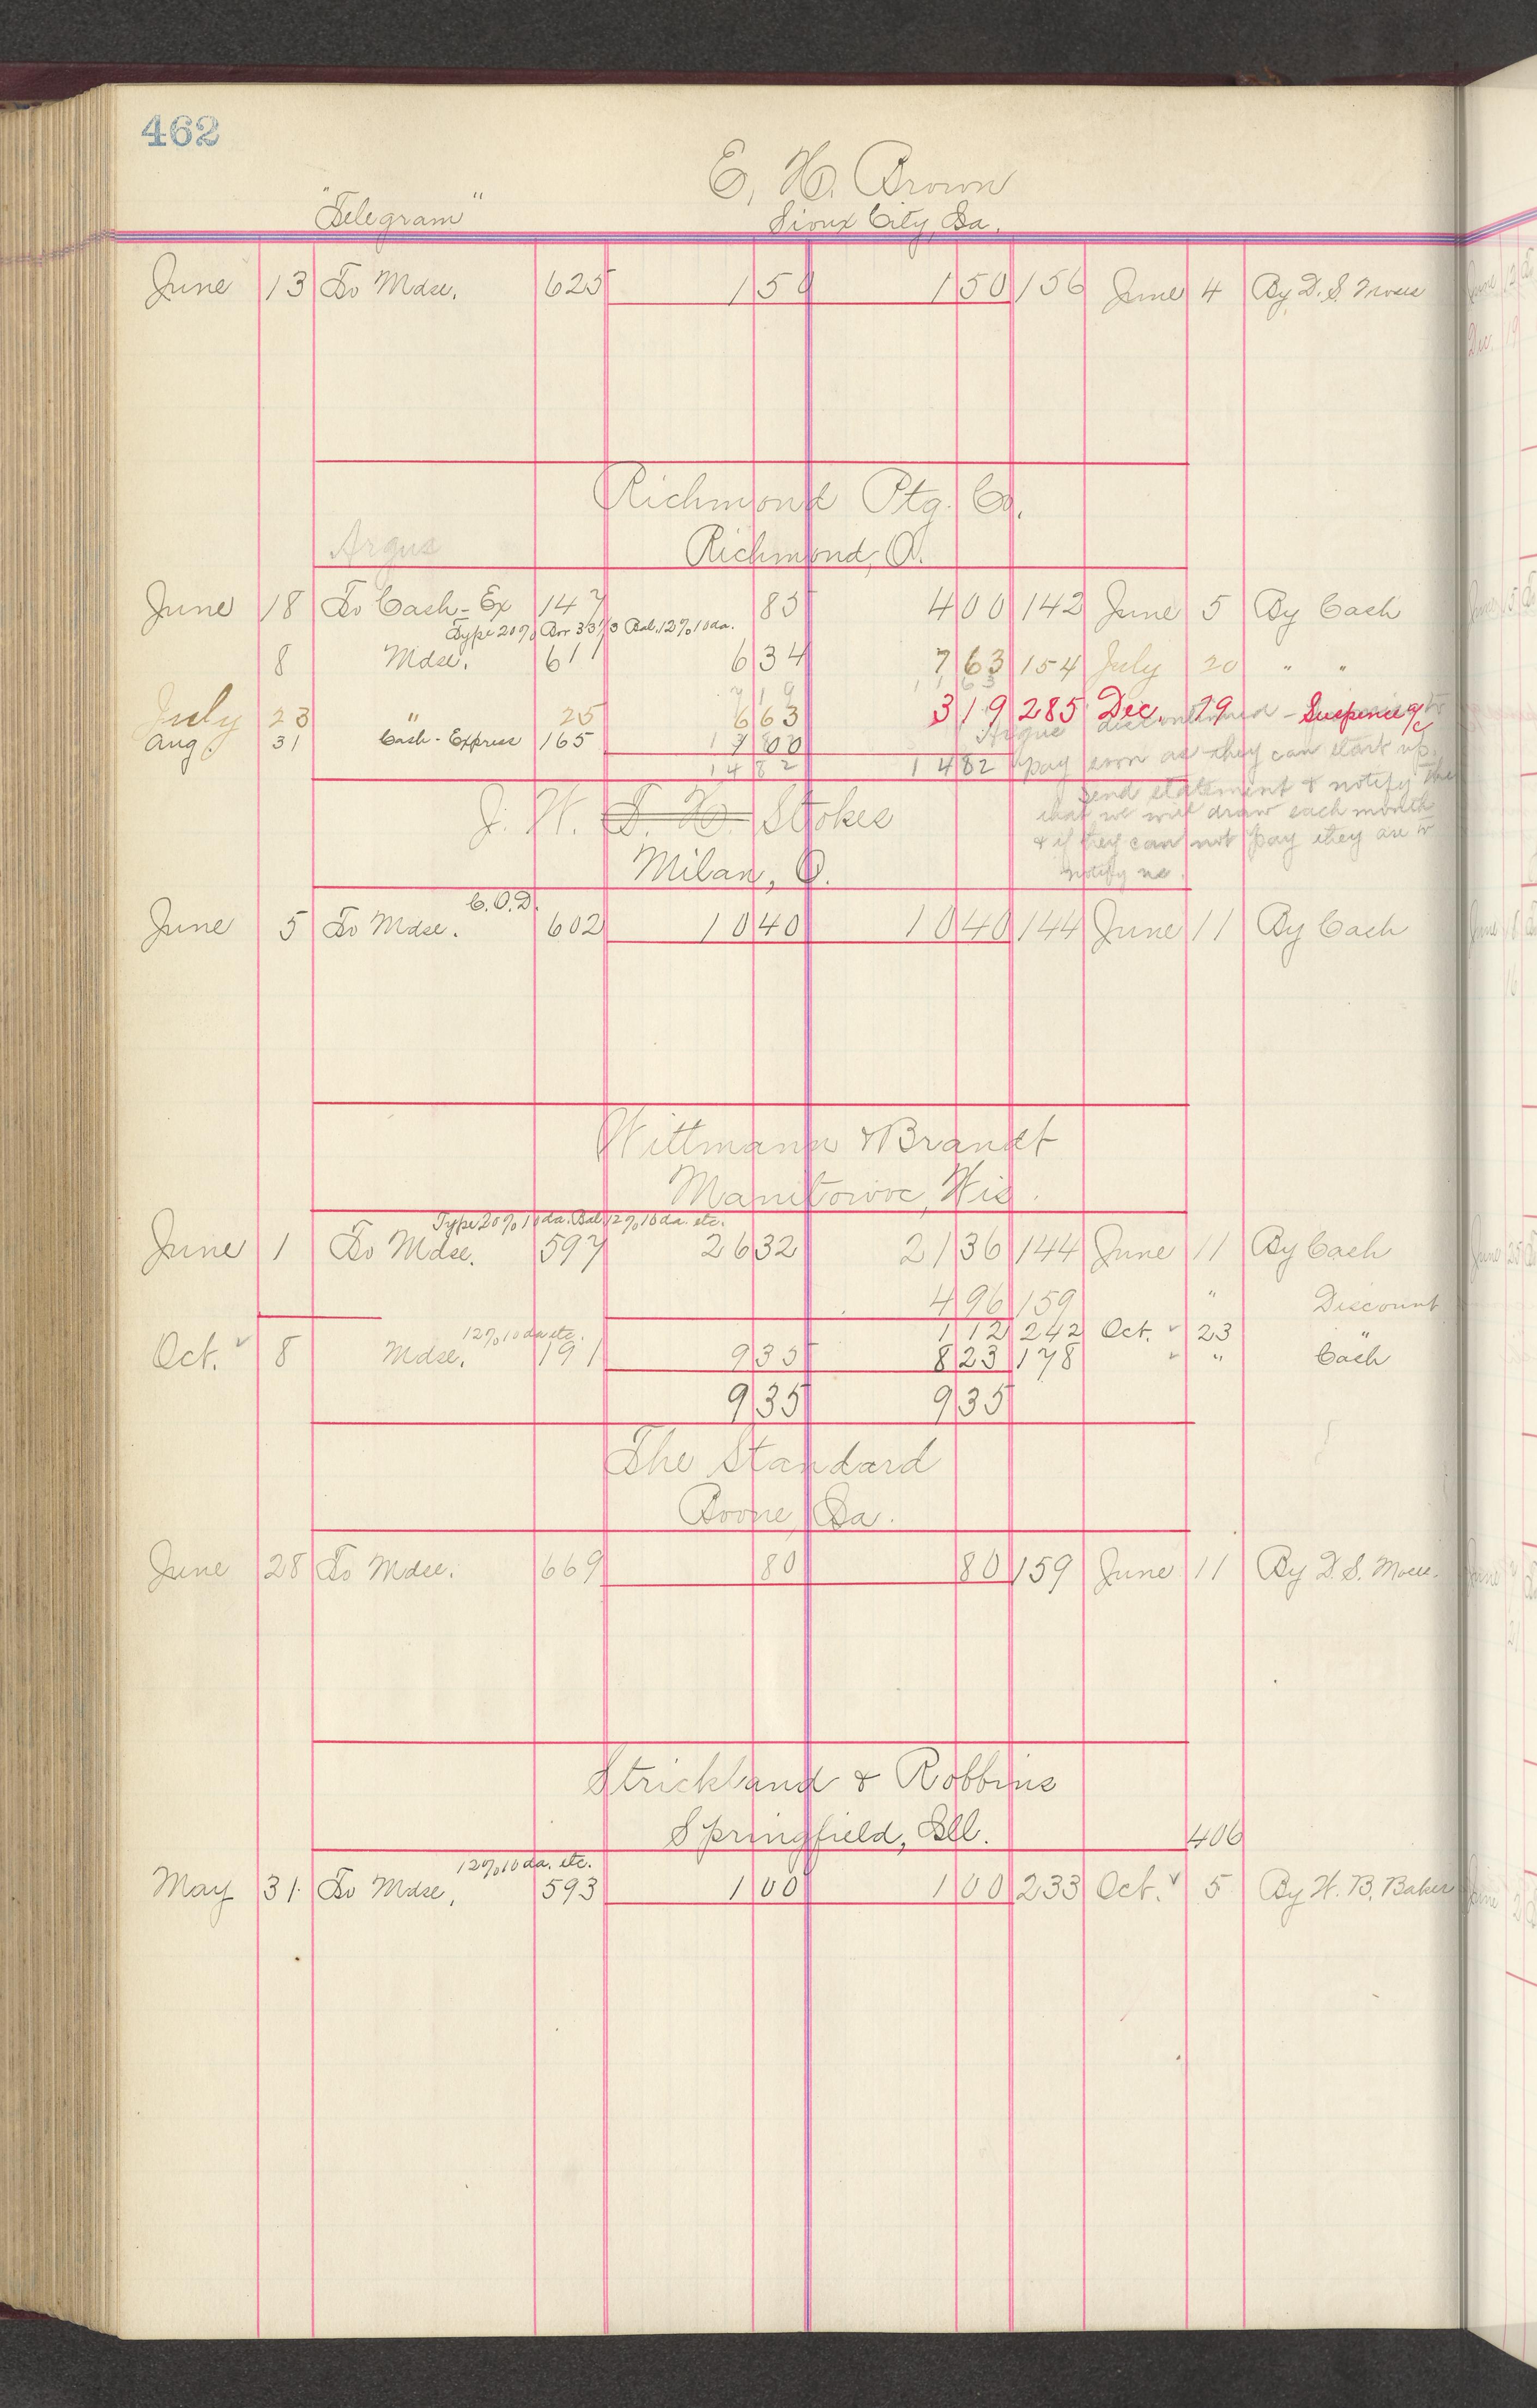 462
E. H. Brown
"Telegram" Sioux City, Ia.
June 13 To Mdse. 625 1 50 1 50 156 June 4 By D. S. Morse
Richmond Ptg. Co.
Argus Richmond, O.
June 18 To Cash - Ex 147 85 4 00 142 June 5 By Cash
Type 20% Bor 33 1/3 Bal. 12% 10 da.
8 Mdse. 611 6 34 7 63 154 July 20 " "
7 19 11 63
July 23 " 25 6 63 3 19 285 Dec. 19 Suspence a/c
Argus discontinued -
Aug. 31 Cash - Express 165 1 00
14 82 14 82 pay soon as they can start up.
Send statement & notify
that we will draw each month
& if they can not pay they are to
notify us.
J. W. T. H. Stokes
Milan, O.
C.O.D.
June 5 To Mdse. 602 10 40 10 40 144 June 11 By Cash
Wittmann & Brandt
Manitowoc, Wis.
Type 20% 10 da. Bal 12% 10 da. etc.
June 1 To Mdse. 597 26 32 21 36 144 June 11 By Cash
4 96 159 " Discount
12% 10 da etc. 1 12 242 Oct. 23 "
Oct. 8 Mdse. 191 9 35 8 23 178 " " Cash
9 35 9 35
The Standard
Boone, Ia.
June 28 To Mdse. 669 80 80 159 June 11 By D. S. Morse.
Strickland & Robbins
Springfield, Ill. 406
12% 10 da. etc.
May 31. To Mdse. 593 1 00 1 00 233 Oct. 5 By W. B. Baker